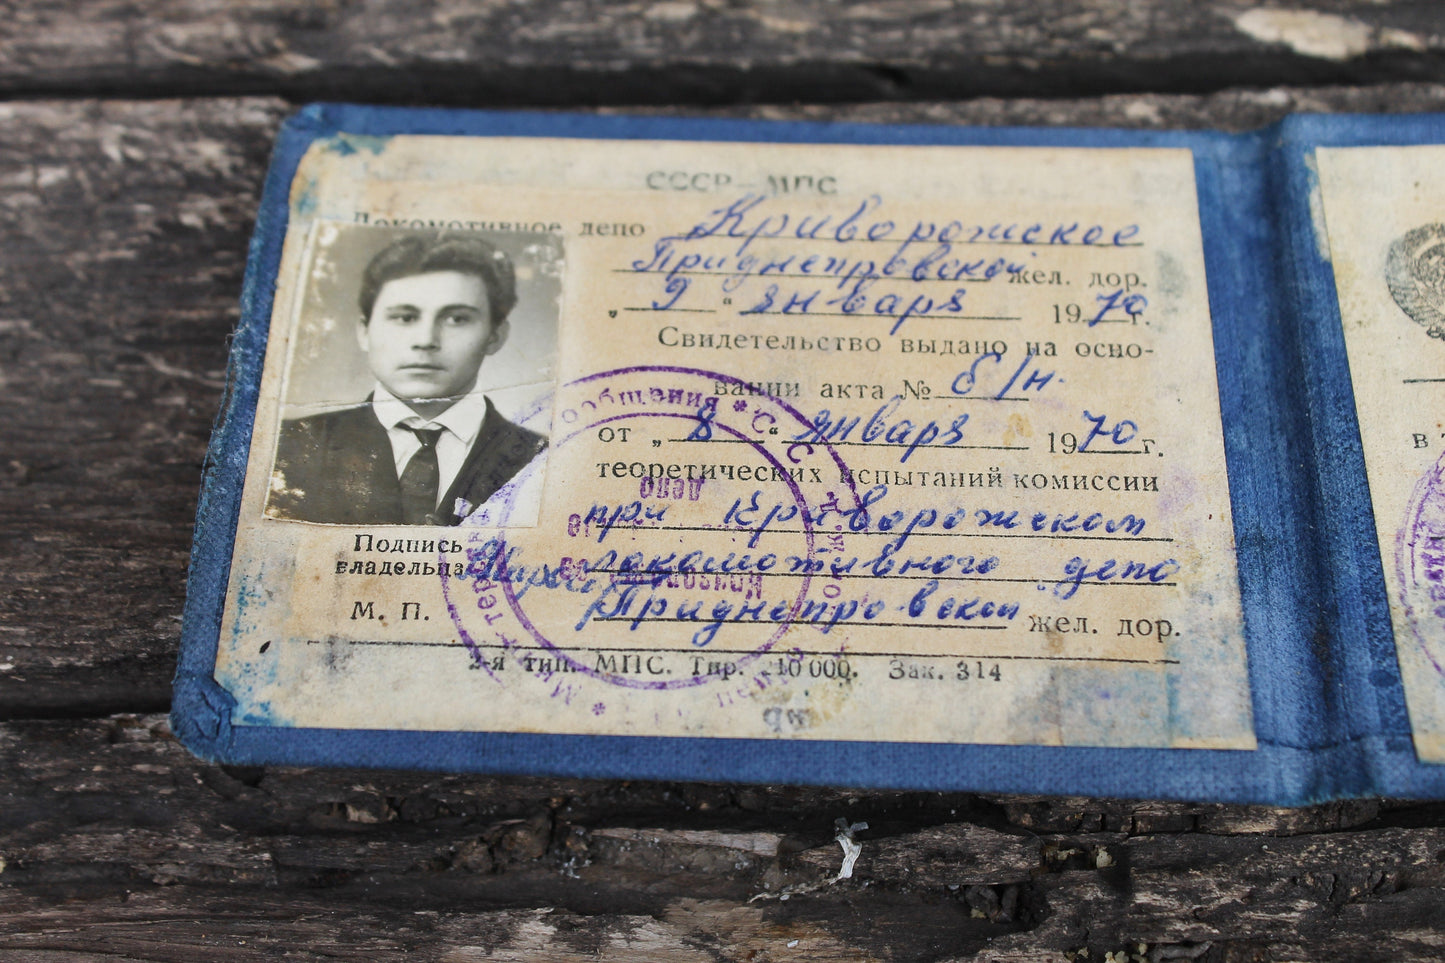 СССР—МПС
Локомотивное депо Криворожское
Приднепровской жел. дор.
„ 9 “ января 1970г.
Свидетельство выдано на осно-
вании акта № б/н.
от „ 8 “ января 1970 г.
теоретических испытаний комиссии
при Криворожском
локомотивного депо
Приднепровской жел. дор.
Подпись
владельца
М. П.
2-я тип. МПС. Тир. 10 000. Зак. 314
сообщения * С С
депо
в